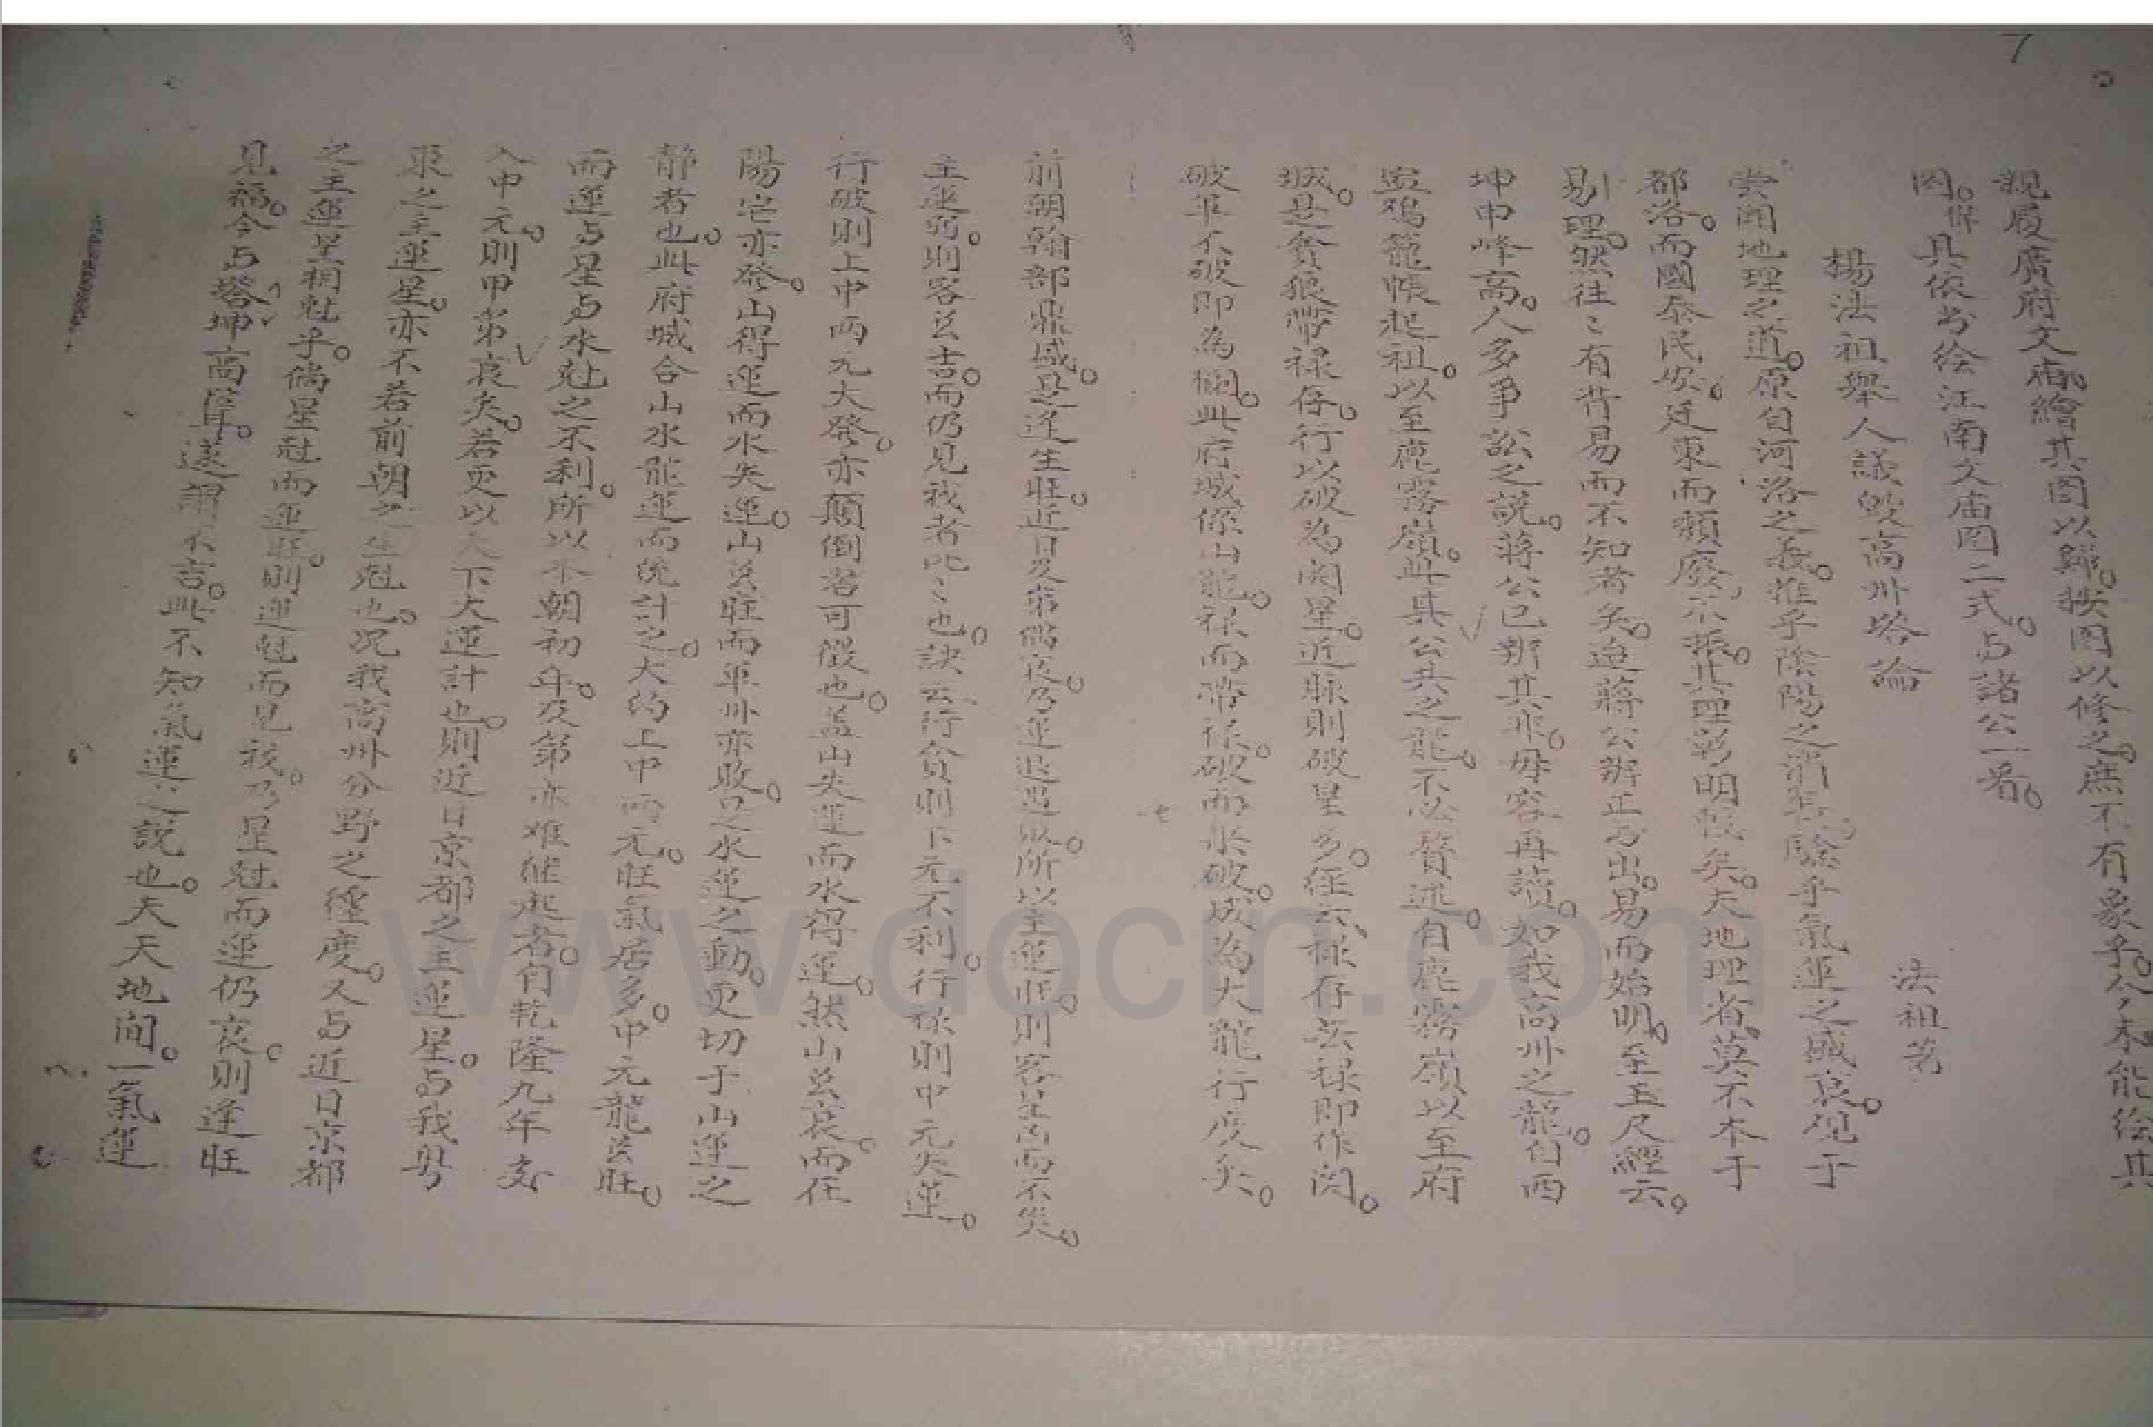 7
親履廣府文廟繪其图以歸。按图以修之。庶不有象乎。今未能绘其
図。俾具依书绘江南文庙図二式。与諸公一看。
楊法祖舉人議毀高州塔論
法祖著
嘗聞地理之道。原自河洛之義。推乎陰陽之消長。驗乎氣運之盛衰。観于
都洛。而國泰民安。廷東而頹廢不振。其理彰明較矣。夫地理者。莫不本于
易理。然往々有背易而不知者矣。迨蔣公辦正而出。易而始明。至玉尺經云。
坤申峰高。人多爭訟之說。蔣公已辦其非。毋容再讀。如我高州之龍。自西
盘鸡籠帳起祖。以至鹿霧嶺。此其公共之龍。不必贅述。自鹿霧嶺以至府
城。是貪狼帶禄存。行以破為関星。近脉則破星多。経云。禄存無禄即作関。
破軍不破即為欄。此府城係山龍。禄而帶禄。破而来破。城為大龍行度矣。
前朝翰部鼎盛。是逢生旺。近日及第偶衰。乃運退迟以。所以主運旺。則客無凶而不災。
主運弱。則客無吉。而仍見我者此々也。訣云。行貪則下元不利。行禄則中元失運。
行破則上中兩元大發。亦顛倒者可假也。盖山失運而水得運。然山無衰。而任
陽宅亦發。山得運而水失運。山無旺而軍州亦敗。是水運之動。更切于山運之
静者也。此府城合山水龍運而統計之。大約上中兩元。旺氣居多。中元龍無旺。
而運与星与水尅之不利。所以本朝初年。及第亦难継起者。自乾隆九年交
入中元。則甲第衰矣。若更以天下大運計也。則近日京都之主運星。与我粤
東之主運星。亦不若前朝之生尅也。况我高州分野之經度。又与近日京都
之主運星相尅乎。倘星尅而運旺。則運尅而見禍。乃星尅而運仍衰。則逢旺
見福。今与塔坤高聳。遂謂不吉。此不知氣運之説也。夫天地间。一氣運
www.docin.com